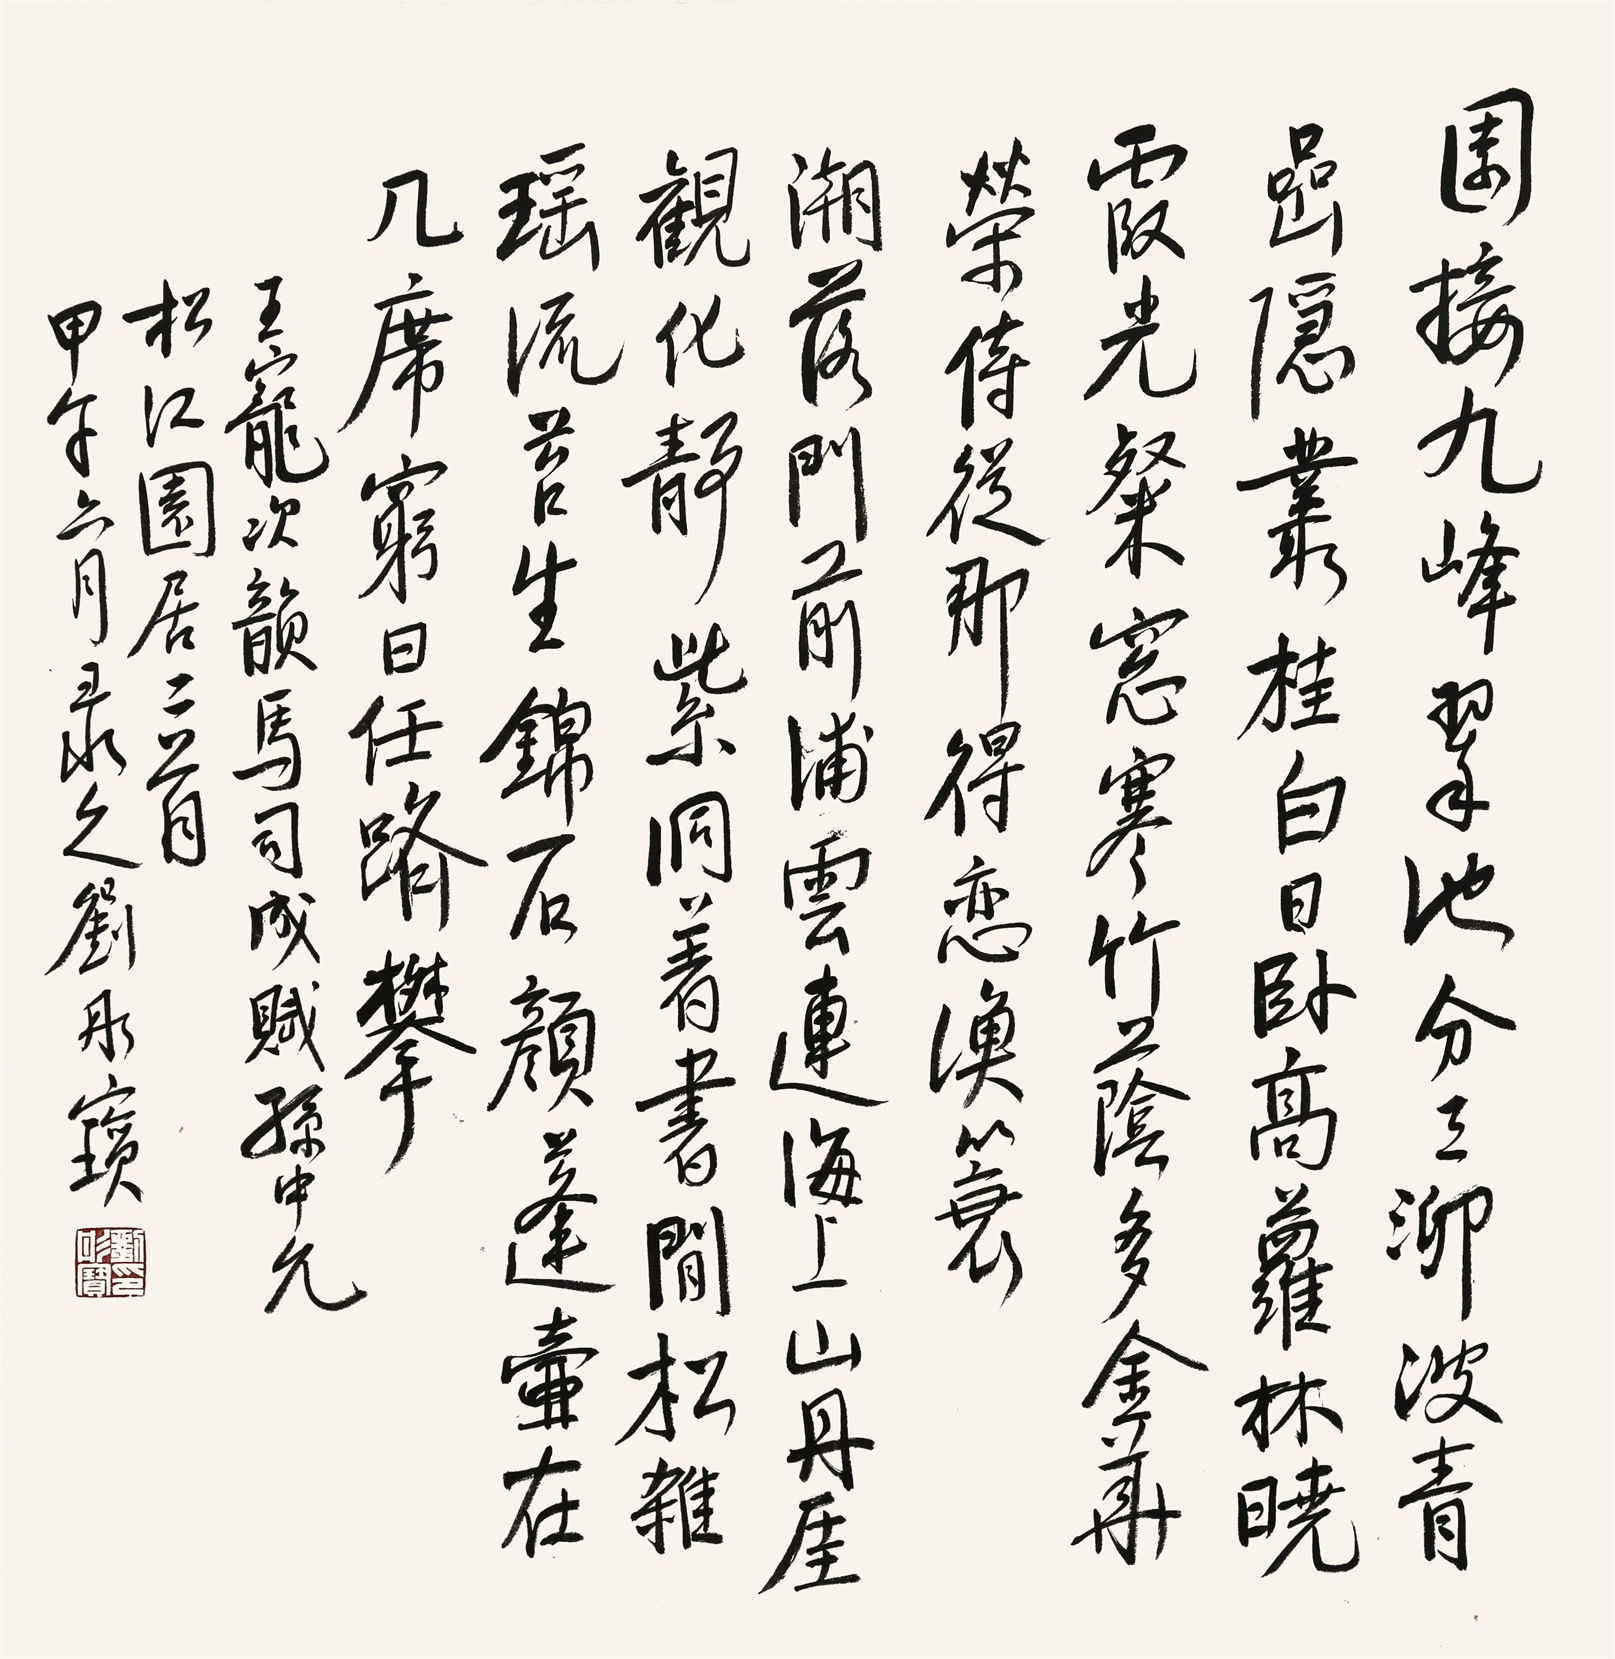 園接九峰翠池分三泖波青
喦隱叢桂白日卧高蘿林曉
霞光粲窓寒竹蔭多金華
榮侍從那得恋漁簑
潮落門前浦雲連海上山丹崖
觀化靜紫洞著書閒松雜
瑶流苔生錦石顔蓬壷在
几席窮日任躋攀
王寵次韻馬司成賦孫中允
松江園居二首
甲午六月录之劉彤寶
劉印彤寶